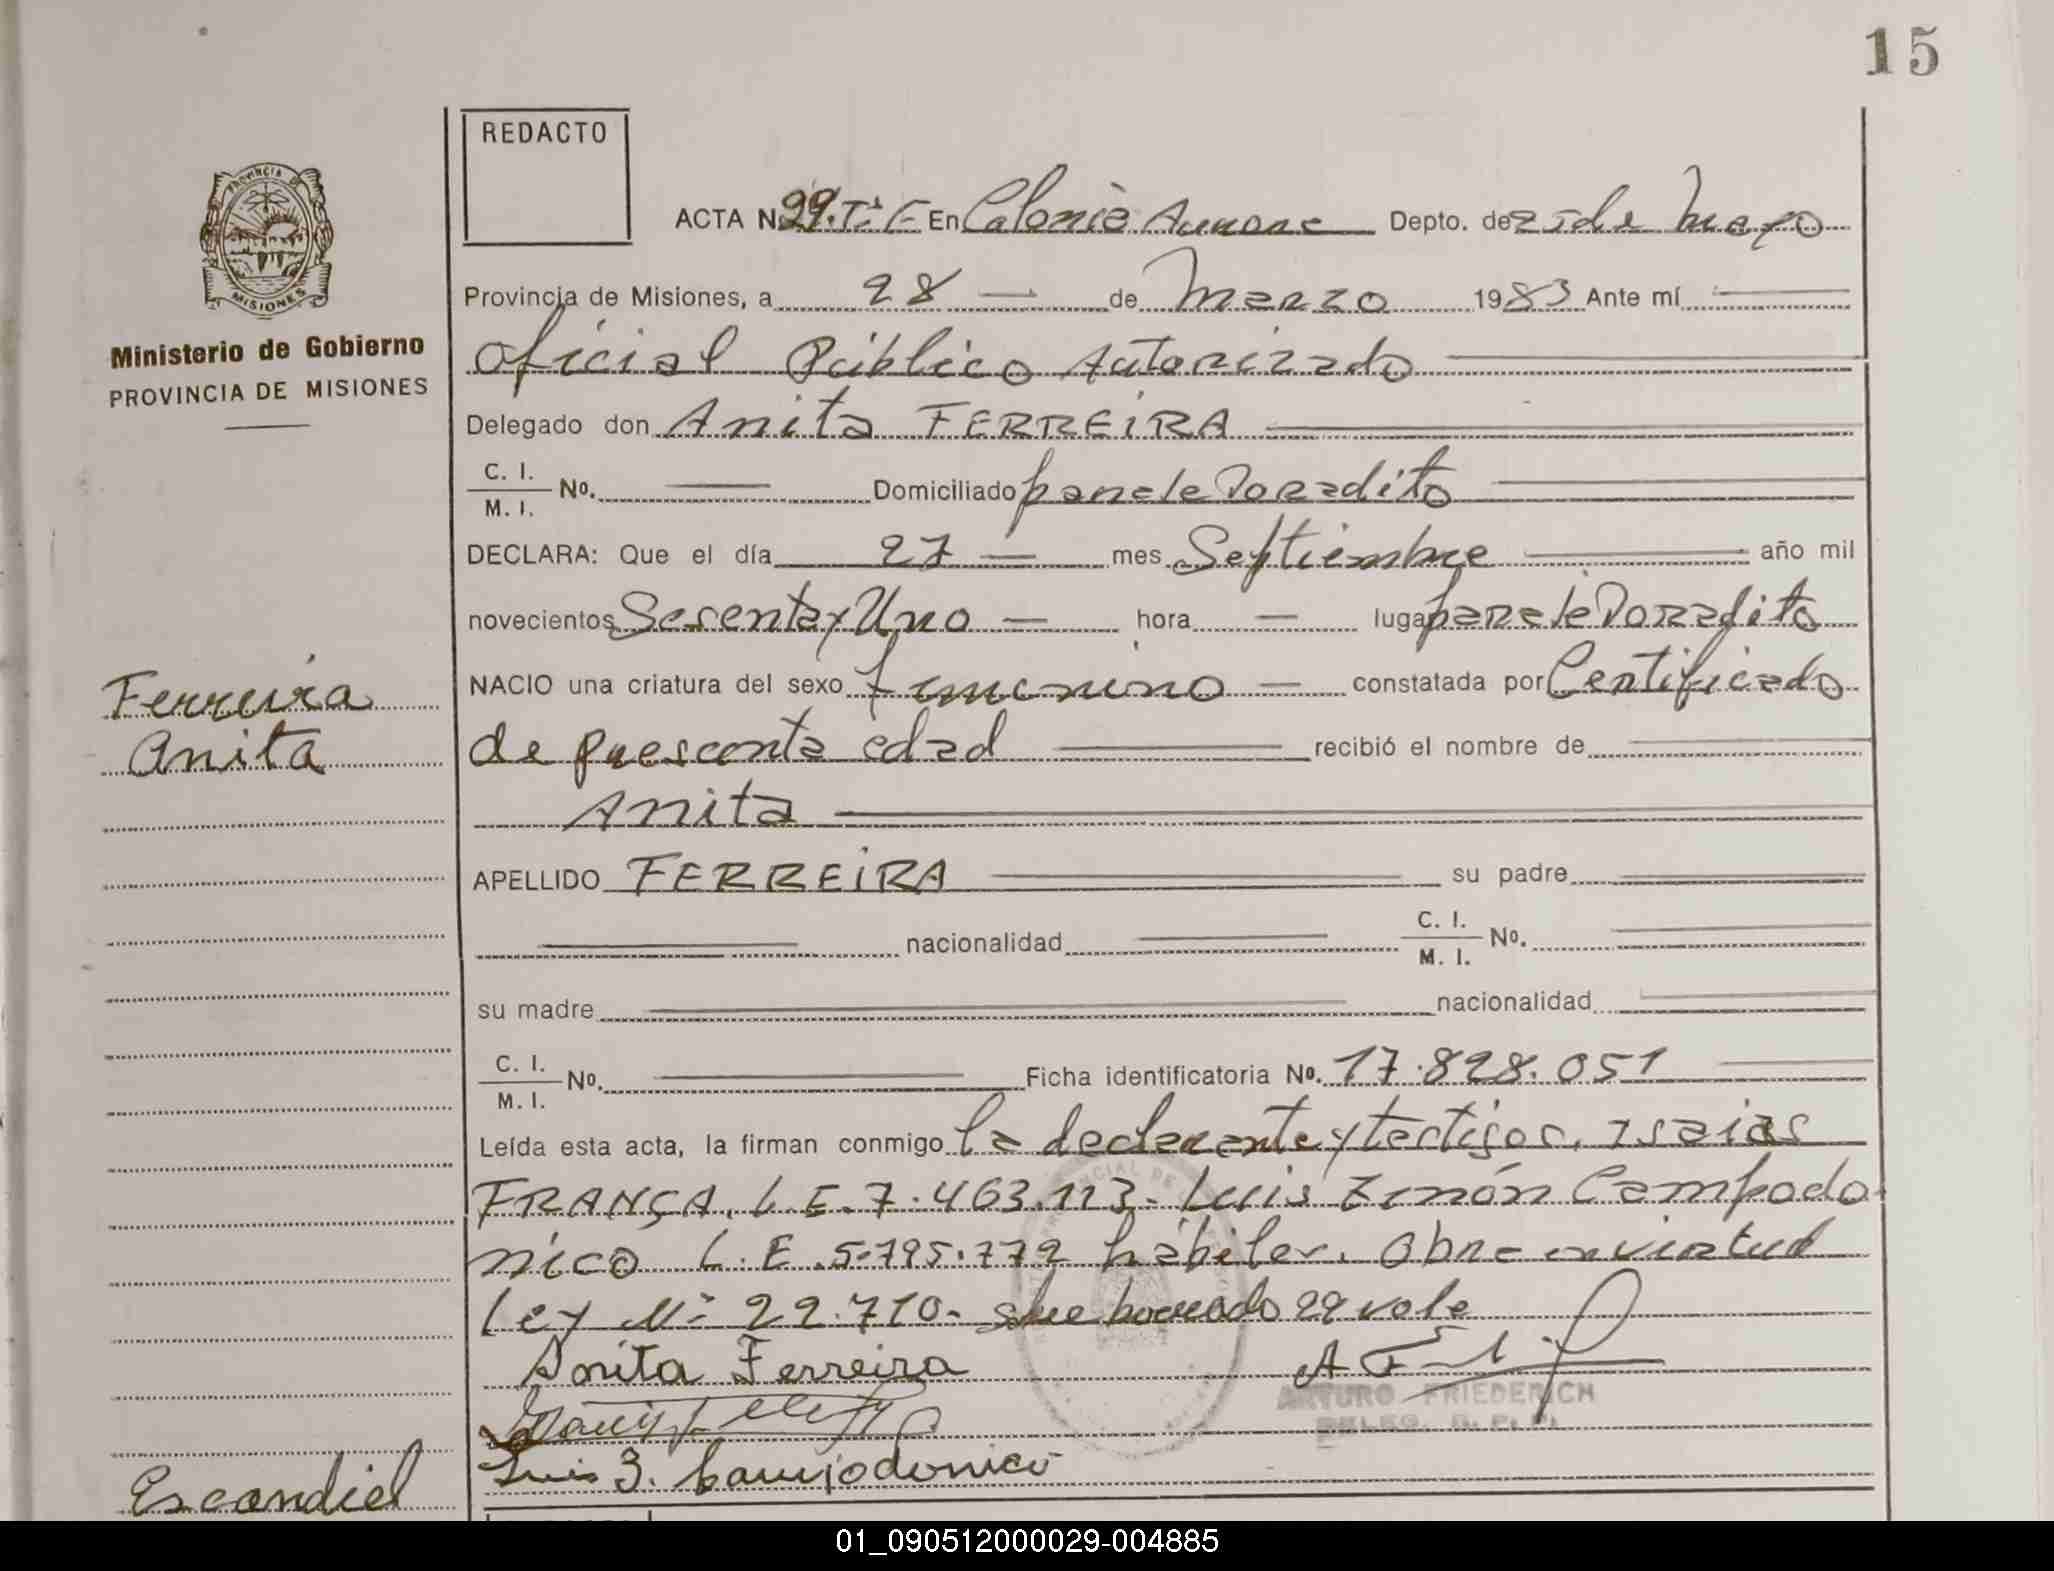 15
REDACTO
ACTA Nº 29. Tº E En Colonia Aurora Depto. de 25 de Mayo
PROVINCIA DE
MISIONES
Provincia de Misiones, a 28 — de Marzo 1983 Ante mí
Ministerio de Gobierno
PROVINCIA DE MISIONES
Oficial Público Autorizado
Delegado don Anita FERREIRA
C. I.
M. I. No. — Domiciliado paraje Doradito
DECLARA: Que el día 27 — mes Septiembre año mil
novecientos Sesenta y Uno — hora — lugar paraje Doradito
Ferreira
Anita
NACIO una criatura del sexo femenino — constatada por Certificado
de presconta edad recibió el nombre de
Anita
APELLIDO FERREIRA su padre
nacionalidad C. I.
M. I. No.
su madre nacionalidad
C. I.
M. I. No. Ficha identificatoria No. 17.828.051
Leída esta acta, la firman conmigo la declarante y testigos, Isaias
FRANÇA, L.E. 7.463.113- Luis Zenón Campodo
nico L.E. 5.795.779 hábiles. Obra en virtud
Ley Nº 22.710- sobre borrado 29 vale
Anita Ferreira
ARTURO FRIEDERICH
DELEG. R. P. P.
Luis Z. Campodonico
Escandiel
01_090512000029-004885